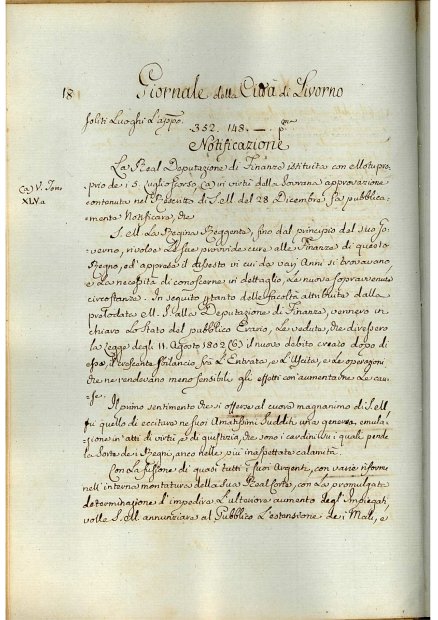 18 Giornale della Città di Livorno
soliti Luoghi L'app.
352. 148. —. p.
Notificazione
La Real Deputazione di Finanze istituita con Motupro
prio de i 5. Luglio scorso, (a) in virtù della Sovrana approvazione
(a) V. Tom.
XLV a
contenuta nel Rescritto di S. M. del 28 Dicembre fa pubblica=
mente Notificare, che
S. M. La Regina Reggente, fino dal principio del suo Go=
verno, rivolse Le sue provvide cure alle Finanze di questo
Regno, ed appresa il dissesto in cui da varj Anni si trovavano,
e La necessità di conoscerne in dettaglio, Le nuove sopravvenute
circostanze. In seguito pertanto delle facoltà attribuite dalla
prelodata M. S. alla Deputazione di Finanze, vennero in
chiaro Lo Stato del pubblico Erario, Le vedute, che diressero
La Legge degli 11. Agosto 1802 (b) il nuovo debito creato dopo di
essa, il crescente sbilancio frà L'Entrata, e L'Uscita, e Le operazioni
che ne rendevano meno sensibile gli effetti con aumentarne Le cau=
se.
Il primo sentimento che si offerse al cuore magnanimo di S. M.
fù quello di eccitare ne suoi Amatissimi Sudditi una generosa emula=
zione in atti di virtù, e di giustizia, che sono i cardini su i quali pende
La sorte de i Regni, anco nelle più inaspettate calamità.
Con La fusione di quasi tutti i suoi Argenti, con varie riforme
nell'interna montatura della sua Real Corte, con La promulgata
determinazione d'impedire L'ulteriore aumento degl'Impiegati,
volle S. M. annunziare al Pubblico L'estensione de i Mali, e